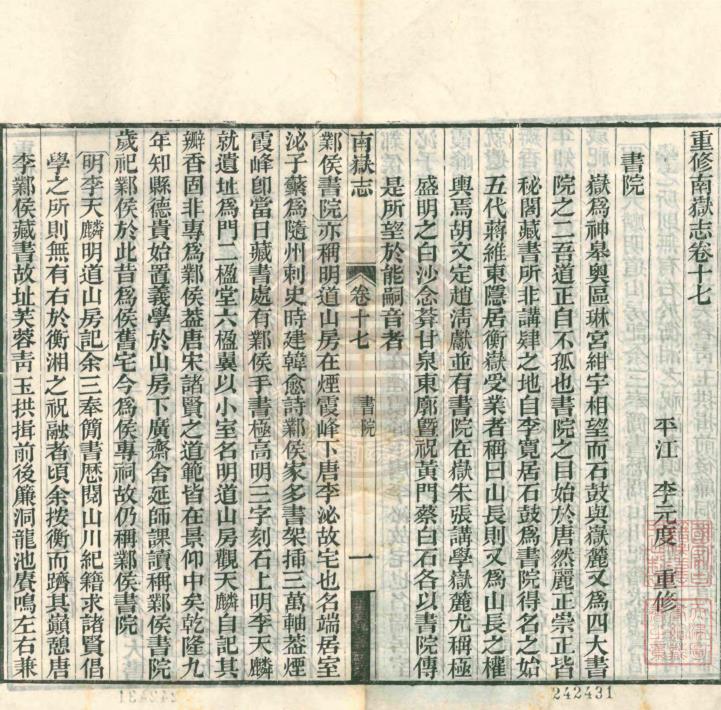 重修南嶽志卷十七
平江 李元度 重修
書院
嶽為神皋奧區琳宮紺宇相望而石鼓與嶽麓又為四大書
院之二吾道正自不孤也書院之目始於唐然麗正崇正皆
秘閣藏書所非講肄之地自李寬居石鼓為書院得名之始
五代蔣維東隱居衡嶽受業者稱曰山長則又為山長之權
輿焉胡文定趙清獻並有書院在嶽朱張講學嶽麓尤稱極
盛明之白沙念菴甘泉東廓暨祝黃門蔡白石各以書院傳
是所望於能嗣音者
南嶽志
卷十七
書院
一
鄴侯書院亦稱明道山房在煙霞峰下唐李泌故宅也名端居室
泌子蘩為隨州刺史時建韓愈詩鄴侯家多書架插三萬軸葢煙
霞峰卽當日藏書處有鄴侯手書極高明三字刻石上明李天麟
就遺址為門二楹堂六楹翼以小室名明道山房觀天麟自記其
瓣香固非專為鄴侯葢唐宋諸賢之道範皆在景仰中矣乾隆九
年知縣德貴始置義學於山房下廣齋舍延師課讀稱鄴侯書院
歲祀鄴侯於此昔為侯舊宅今為侯專祠故仍稱鄴侯書院
明李天麟明道山房記余三奉簡書歷閱山川紀籍求諸賢倡
學之所則無有右於衡湘之祝融者頃余按衡而躋其巔憩唐
李鄴侯藏書故址芙蓉靑玉拱揖前後廉洞龍池賡鳴左右兼
242431